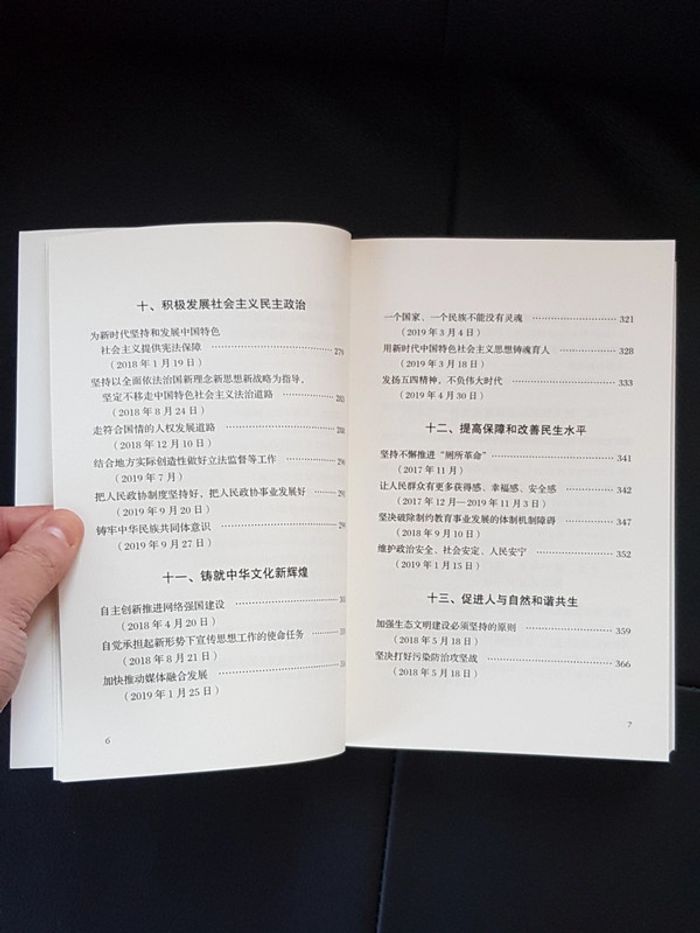 十、积极发展社会主义民主政治
为新时代坚持和发展中国特色
社会主义提供宪法保障 279
(2018年1月19日)
坚持以全面依法治国新理念新思想新战略为指导，
坚定不移走中国特色社会主义法治道路 283
(2018年8月24日)
走符合国情的人权发展道路 288
(2018年12月10日)
结合地方实际创造性做好立法监督等工作
(2019年7月)
把人民政协制度坚持好，把人民政协事业发展好
(2019年9月20日)
铸牢中华民族共同体意识
(2019年9月27日)
十一、铸就中华文化新辉煌
自主创新推进网络强国建设
(2018年4月20日)
自觉承担起新形势下宣传思想工作的使命任务
(2018年8月21日)
加快推动媒体融合发展
(2019年1月25日)
6
一个国家、一个民族不能没有灵魂 321
(2019年3月4日)
用新时代中国特色社会主义思想铸魂育人 328
(2019年3月18日)
发扬五四精神，不负伟大时代 333
(2019年4月30日)
十二、提高保障和改善民生水平
坚持不懈推进“厕所革命” 341
(2017年11月)
让人民群众有更多获得感、幸福感、安全感 342
(2017年12月—2019年11月3日)
坚决破除制约教育事业发展的体制机制障碍 347
(2018年9月10日)
维护政治安全、社会安定、人民安宁 352
(2019年1月15日)
十三、促进人与自然和谐共生
加强生态文明建设必须坚持的原则 359
(2018年5月18日)
坚决打好污染防治攻坚战 366
(2018年5月18日)
7